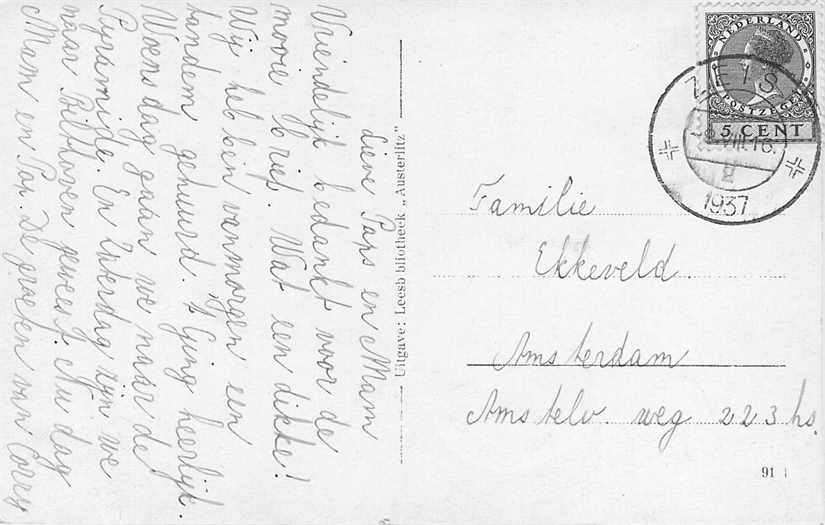 Lieve Paps en Mam
Vriendelijk bedankt voor de
mooie brief. Wat een dikke!
Wij hebben vanmorgen een
tandem gehuurd. 't Ging heerlijk.
Woensdag gaan we naar de
Pyramide. En Zaterdag zijn we
naar Bilthoven geweest. Nu dag
Mam en Pap. De groeten van Corry
Uitgave: Leesbibliotheek „Austerlitz”
NEDERLAND
POSTZEGEL
5 CENT
ZEIST
VIII.16
1937
Familie
Ekkeveld.
Amsterdam
Amstelv. weg 223 hs.
91